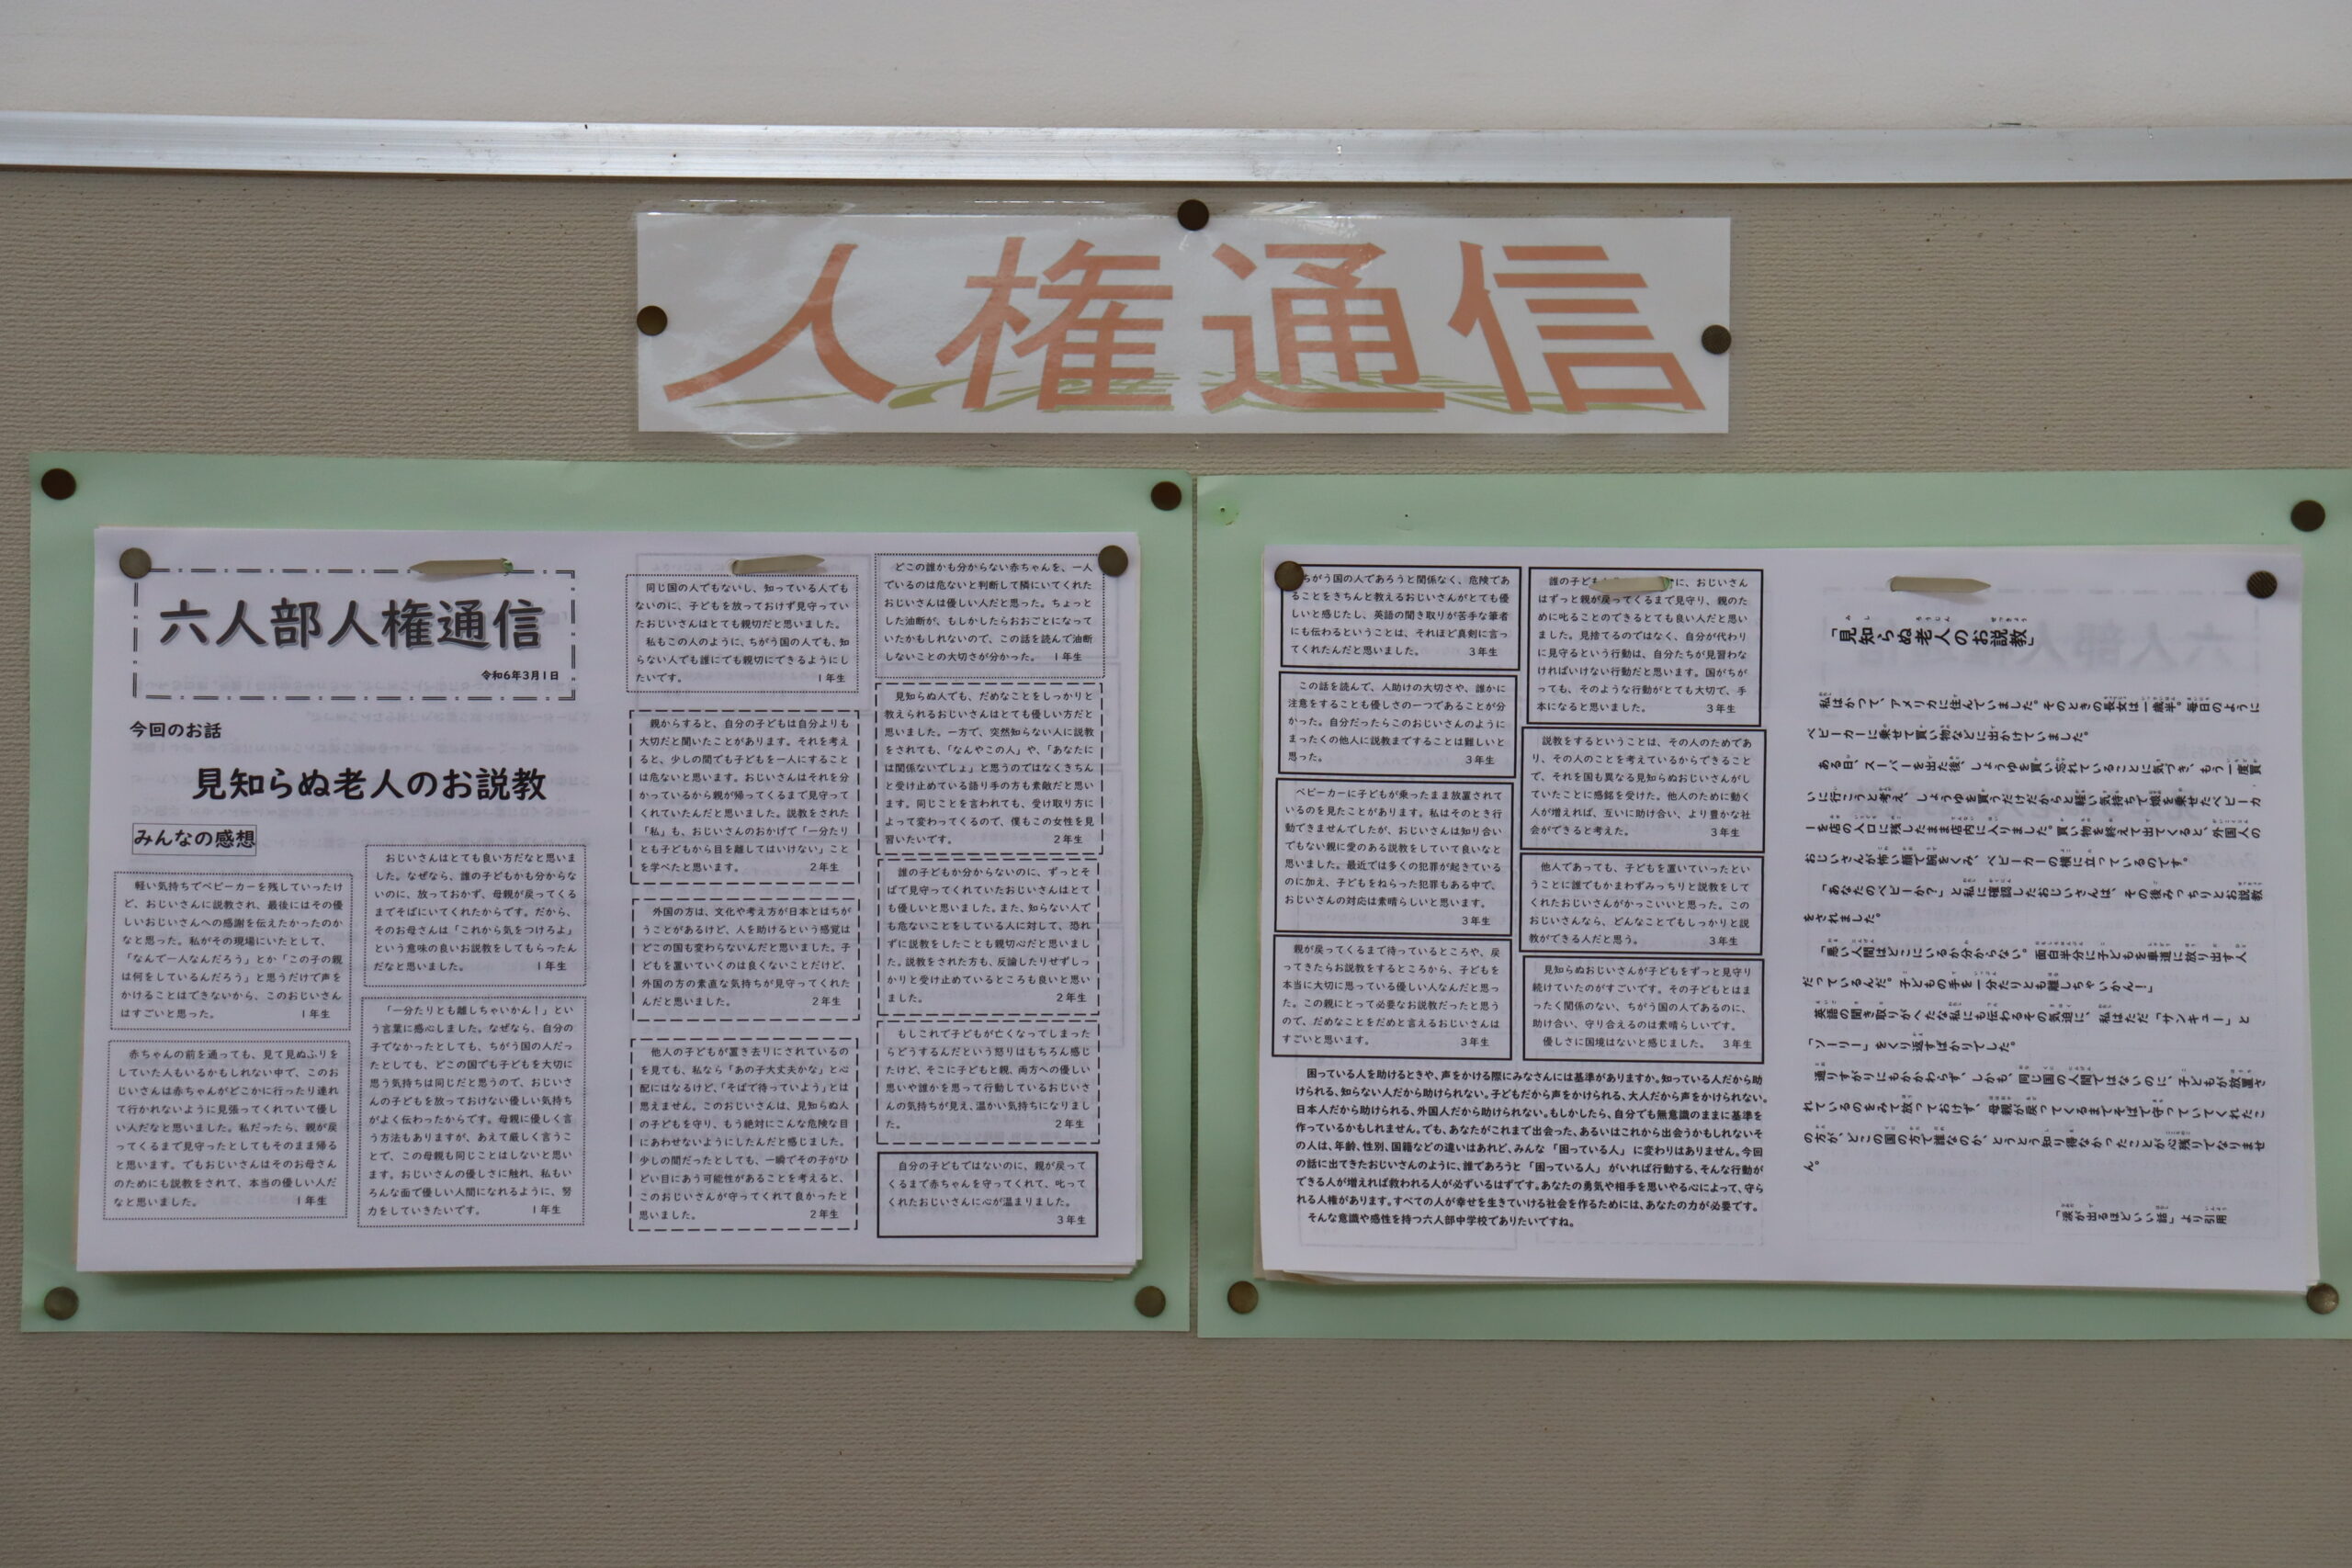 人権通信
六人部人権通信
令和6年3月1日
今回のお話
見知らぬ老人のお説教
みんなの感想
軽い気持ちでベビーカーを残していったけ
ど、おじいさんに説教され、最後にはその優
しいおじいさんへの感謝を伝えたかったのか
なと思った。私がその現場にいたとして、
「なんで一人なんだろう」とか「この子の親
は何をしているんだろう」と思うだけで声を
かけることはできないから、このおじいさん
はすごいと思った。 1年生
赤ちゃんの前を通っても、見て見ぬふりを
していた人もいるかもしれない中で、このお
じいさんは赤ちゃんがどこかに行ったり連れ
て行かれないように見張ってくれていて優し
い人だなと思いました。私だったら、親が戻
ってくるまで見守ったとしてもそのまま帰る
と思います。でもおじいさんはそのお母さん
のためにも説教をされて、本当の優しい人だ
なと思いました。 1年生
おじいさんはとても良い方だなと思いま
した。なぜなら、誰の子どもかも分からな
いのに、放っておかず、母親が戻ってくる
までそばにいてくれたからです。だから、
そのお母さんは「これから気をつけるよ」
という意味の良いお説教をしてもらったん
だなと思いました。 1年生
「一分たりとも離しちゃいかん！」とい
う言葉に感心しました。なぜなら、自分の
子でなかったとしても、ちがう国の人だっ
たとしても、どこの国でも子どもを大切に
思う気持ちは同じだと思うので、おじいさ
んの子どもを放っておけない優しい気持ち
がよく伝わったからです。母親に優しく言
う方法もありますが、あえて厳しく言うこ
とで、この母親も同じことはしないと思い
ます。おじいさんの優しさに触れ、私もい
ろんな面で優しい人間になれるように、努
力をしていきたいです。 1年生
同じ国の人でもないし、知っている人でも
ないのに、子どもを放っておけず見守ってい
たおじいさんはとても親切だと思いました。
私もこの人のように、ちがう国の人でも、知
らない人でも誰にでも親切にできるようにし
たいです。 1年生
親からすると、自分の子どもは自分よりも
大切だと聞いたことがあります。それを考え
ると、少しの間でも子どもを一人にすること
は危ないと思います。おじいさんはそれを分
かっているから親が帰ってくるまで見守って
くれていたんだと思いました。説教をされた
「私」も、おじいさんのおかげで「一分たり
とも子どもから目を離してはいけない」こと
を学べたと思います。 2年生
外国の方は、文化や考え方が日本とはちが
うことがあるけど、人を助けるという感覚は
どこの国も変わらないんだと思いました。子
どもを置いていくのは良くないことだけど、
外国の方の素直な気持ちが見守ってくれた
んだと思いました。 2年生
他人の子どもが置き去りにされているの
を見ても、私なら「あの子大丈夫かな」と心
配にはなるけど、「そばで待っていよう」とは
思えません。このおじいさんは、見知らぬ人
の子どもを守り、もう絶対にこんな危険な目
にあわせないようにしたんだと感じました。
少しの間だったとしても、一瞬でその子がひ
どい目にあう可能性があることを考えると、
このおじいさんが守ってくれて良かったと
思いました。 2年生
どこの誰かも分からない赤ちゃんを、一人
でいるのは危ないと判断して隣にいてくれた
おじいさんは優しい人だと思った。ちょっと
した油断が、もしかしたらおおごとになって
いたかもしれないので、この話を読んで油断
しないことの大切さが分かった。 1年生
見知らぬ人でも、だめなことをしっかりと
教えられるおじいさんはとても優しい方だと
思いました。一方で、突然知らない人に説教
をされても、「なんやこの人」や、「あなたに
は関係ないでしょ」と思うのではなくきちん
と受け止めている語り手の方も素敵だと思い
ます。同じことを言われても、受け取り方に
よって変わってくるので、僕もこの女性を見
習いたいです。 2年生
誰の子どもか分からないのに、ずっとそ
ばで見守ってくれていたおじいさんはとて
も優しいと思いました。また、知らない人で
も危ないことをしている人に対して、恐れ
ずに説教をしたことも親切心だと思いまし
た。説教をされた方も、反論したりせずしっ
かりと受け止めているところも良いと思い
ました。 2年生
もしこれで子どもが亡くなってしまった
らどうするんだという怒りはもちろん感じ
たけど、そこに子どもと親、両方への優しい
思いや誰かを思って行動しているおじいさ
んの気持ちが見え、温かい気持ちになりまし
た。 2年生
自分の子どもではないのに、親が戻って
くるまで赤ちゃんを守ってくれて、叱って
くれたおじいさんに心が温まりました。
3年生
ちがう国の人であろうと関係なく、危険であ
ることをきちんと教えるおじいさんがとても優
しいと感じたし、英語の聞き取りが苦手な筆者
にも伝わるということは、それほど真剣に言っ
てくれたんだと思いました。 3年生
この話を読んで、人助けの大切さや、誰かに
注意をすることも優しさの一つであることが分
かった。自分だったらこのおじいさんのように
まったくの他人に説教まですることは難しいと
思った。 3年生
ベビーカーに子どもが乗ったまま放置されて
いるのを見たことがあります。私はそのとき行
動できませんでしたが、おじいさんは知り合い
でもない親に愛のある説教をしていて良いなと
思いました。最近では多くの犯罪が起きている
のに加え、子どもをねらった犯罪もある中で、
おじいさんの対応は素晴らしいと思います。
3年生
親が戻ってくるまで待っているところや、戻
ってきたらお説教をするところから、子どもを
本当に大切に思っている優しい人なんだと思っ
た。この親にとって必要なお説教だったと思う
ので、だめなことをだめと言えるおじいさんは
すごいと思います。 3年生
誰の子ども に、おじいさん
はずっと親が戻ってくるまで見守り、親のた
めに叱ることのできるとても良い人だと思い
ました。見捨てるのではなく、自分が代わり
に見守るという行動は、自分たちが見習わな
ければいけない行動だと思います。国がちが
っても、そのような行動がとても大切で、手
本になると思いました。 3年生
説教をするということは、その人のためであ
り、その人のことを考えているからできること
で、それを国も異なる見知らぬおじいさんがし
ていたことに感銘を受けた。他人のために動く
人が増えれば、互いに助け合い、より豊かな社
会ができると考えた。 3年生
他人であっても、子どもを置いていったとい
うことに誰でもかまわずみっちりと説教をして
くれたおじいさんがかっこいいと思った。この
おじいさんなら、どんなことでもしっかりと説
教ができる人だと思う。 3年生
見知らぬおじいさんが子どもをずっと見守り
続けていたのがすごいです。その子どもとはま
ったく関係のない、ちがう国の人であるのに、
助け合い、守り合えるのは素晴らしいです。
優しさに国境はないと感じました。 3年生
困っている人を助けるときや、声をかける際にみなさんには基準がありますか。知っている人だから助
けられる、知らない人だから助けられない。子どもだから声をかけられる、大人だから声をかけられない。
日本人だから助けられる、外国人だから助けられない。もしかしたら、自分でも無意識のままに基準を
作っているかもしれません。でも、あなたがこれまで出会った、あるいはこれから出会うかもしれないそ
の人は、年齢、性別、国籍などの違いはあれど、みんな「困っている人」に変わりはありません。今回
の話に出てきたおじいさんのように、誰であろうと「困っている人」がいれば行動する、そんな行動が
できる人が増えれば救われる人が必ずいるはずです。あなたの勇気や相手を思いやる心によって、守ら
れる人権があります。すべての人が幸せを生きていける社会を作るためには、あなたの力が必要です。
そんな意識や感性を持つ六人部中学校でありたいですね。
「見知らぬ老人のお説教」
私はかつて、アメリカに住んでいました。そのときの長女は一歳半。毎日のように
ベビーカーに乗せて買い物などに出かけていました。
ある日、スーパーを出た後、しょうゆを買い忘れていることに気づき、もう一度買
いに行こうと考え、しょうゆを買うだけだからと軽い気持ちで娘を乗せたベビーカ
ーを店の入口に残したまま店内に入りました。買い物を終えて出てくると、外国人の
おじいさんが怖い顔で腕をくみ、ベビーカーの横に立っているのです。
「あなたのベビーか？」と私に確認したおじいさんは、その後みっちりとお説教
をされました。
「悪い人間はどこにいるか分からない。面白半分に子どもを車道に放り出す人
だっているんだ。子どもの手を一分たりとも離しちゃいかん！」
英語の聞き取りがへたな私にも伝わるその気迫に、私はただ「サンキュー」と
「ソーリー」をくり返すばかりでした。
通りすがりにもかかわらず、しかも、同じ国の人間ではないのに、子どもが放置さ
れているのをみて放っておけず、母親が戻ってくるまでそばで守っていてくれたこ
の方が、どこの国の方で誰なのか、とうとう知り得なかったことが心残りでなりませ
ん。
「涙が出るほどいい話」より引用